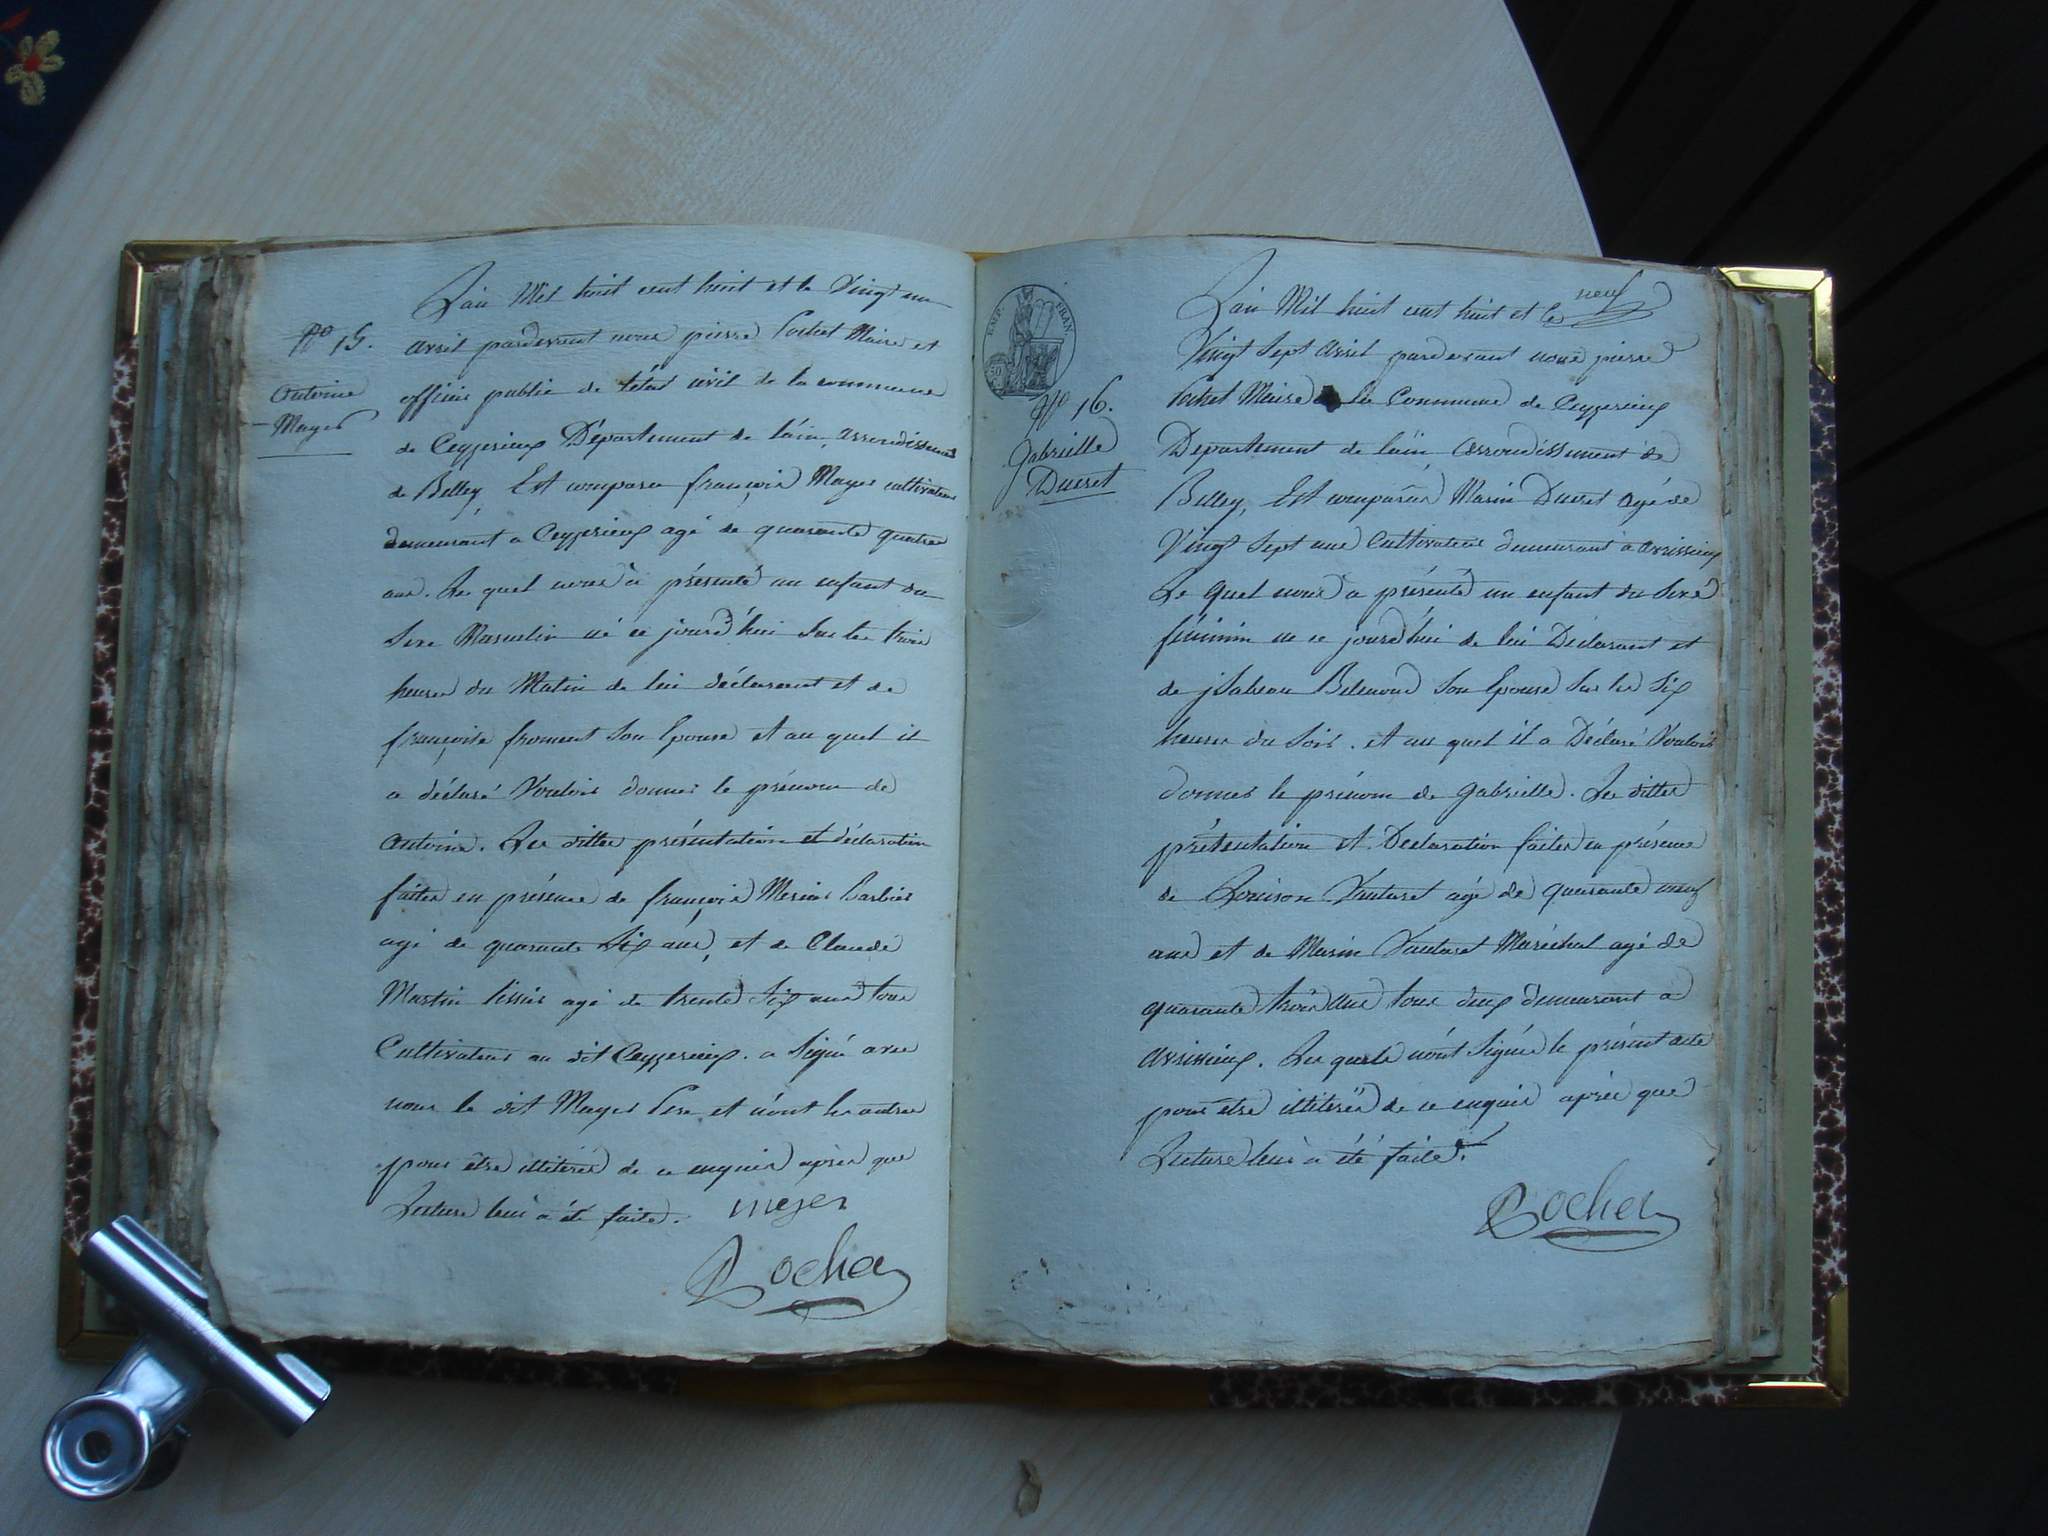 L'an Mil huit cent huit et le Vingt un
N.o 15.
avril pardevant nous pierre Rochet Maire et
Antoine
officier public de l'état civil de la commune
Mayer
de Ceyzerieux Département de l'ain, arrondissement
de Belley, Est comparu françois Mayer cultivateur
demeurant a Ceyzerieux agé de quarante quatre
ans. Le quel nous à présenté un enfant du
Sexe Masculin né ce jourd'hui Sur les trois
heures du Matin de lui déclarant et de
françoise froment Son Epouse et au quel il
a déclaré Vouloir donner le prénom de
Antoine. Les dittes présentation et déclaration
faites en présence de françois Barbier
agé de quarante Six ans, et de Claude
Martin tissier agé de trente Six ans tous
Cultivateurs au dit Ceyzerieux. a Signé avec
nous le dit Mayer Pere et n'ont les autres
pour être illitérés de ce enquis après que
Lecture leur a été faite. meyer
Rochet
neuf
L'an Mil huit cent huit et le
Vingt Sept avril pardevant nous pierre
EMP. FRAN.
50
Rochet Maire de la Commune de Ceyzerieux
N.o 16.
Gabrielle
Ducret
Département de l'ain arrondissement de
Belley, Est comparu Marin Ducret agé de
Vingt Sept ans Cultivateur demeurant a avrissieux
Le Quel nous a présenté un enfant du Sexe
féminin né ce jourd'hui de lui Déclarant et
de jsabeau Son Epouse Sur les Six
heures du Soir. et au quel il a Déclaré Vouloir
donner le prénom de Gabrielle. Les dittes
présentation et Declaration faites en présence
de agé de quarante neuf
ans et de Marin Maréchal agé de
quarante trois ans tous deux demeurant a
avrissieux. Les quels n'ont Signés le présent acte
pour etre illiterés de ce enquis après que
Lecture leur a été faite.
Rochet